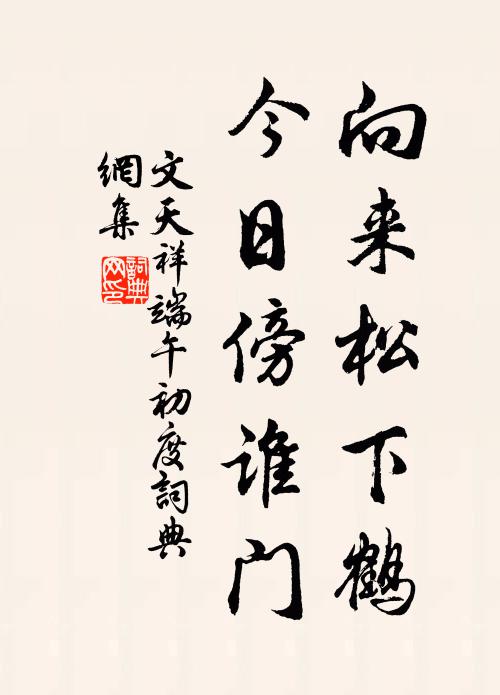 向来松下鹤
今日傍谁门
文天祥端午初度詞典
網集
詞典網印